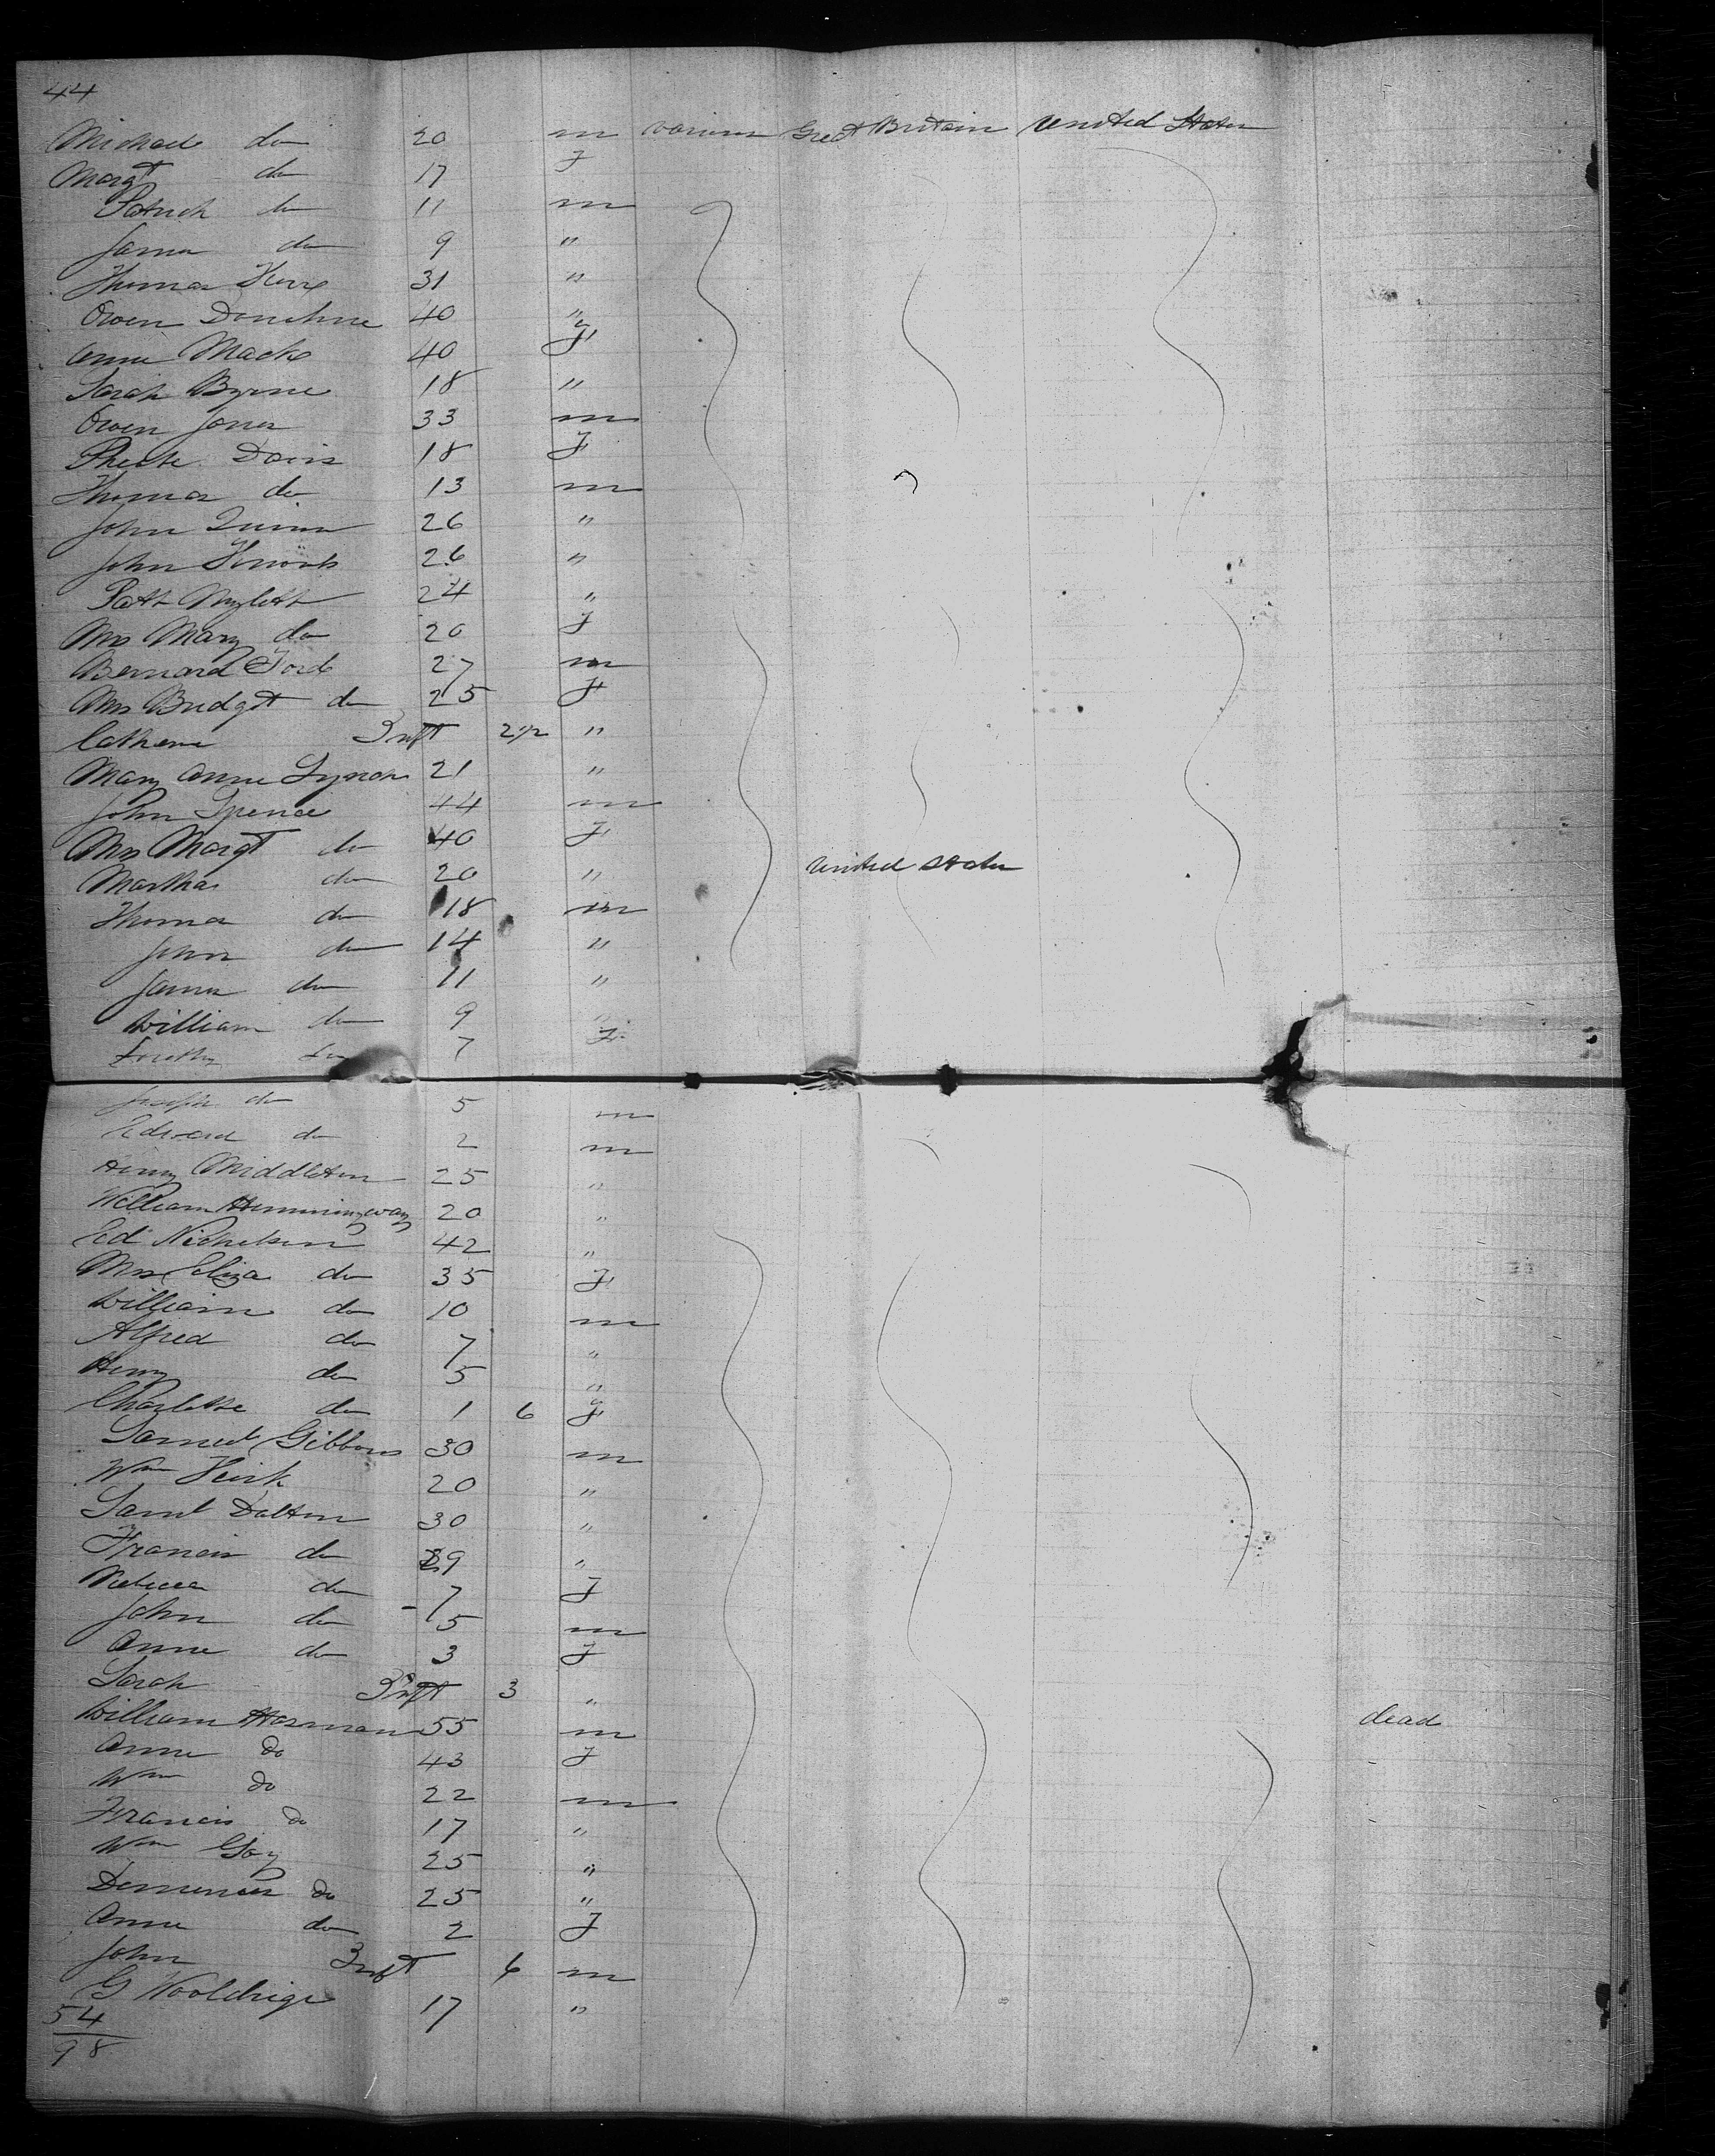 44
Michael do 20 m various Great Britain United States
Margt do 17 F
Patrick do 11 m
James do 9 "
Thomas 31 "
Owen Donohue 40 "
Anne Mack 40 F
Sarah Byrne 18 "
Owen Jones 33 m
Phebe Davis 18 F
Thomas do 13 m
John Quinn 26 "
John 26 "
Patk 24 "
Mrs Mary do 20 F
Bernard Ford 27 m
Mrs Bridget do 25 F
Catherine Inft 2 1/2 "
Mary Anne Lynch 21 "
John Spence 44 m
Mrs Margt do 40 F
Martha do 20 " United States
Thomas do 18 m
John do 14 "
James do 11 "
William do 9 "
do 7 F
Joseph do 5 m
Edward do 2 m
Henry Middleton 25 "
William Hemmingway 20 "
Ed Nicholson 42 "
Mrs Eliza do 35 F
William do 10 m
Alfred do 7 "
Henry do 5 "
Charlotte do 1 6 F
Samuel Gibbons 30 m
Wm 20 "
Saml Dalton 30 "
Francis do 29 "
Rebecca do 7 F
John do 5 m
Anne do 3 F
Sarah Inft 3 "
William Harman 55 m dead
Anne do 43 F
Wm do 22 m
Francis do 17 "
Wm Gay 25 "
do 25 "
Anne do 2 F
John Inft 6 m
G Wooldrige 17 "
54
98